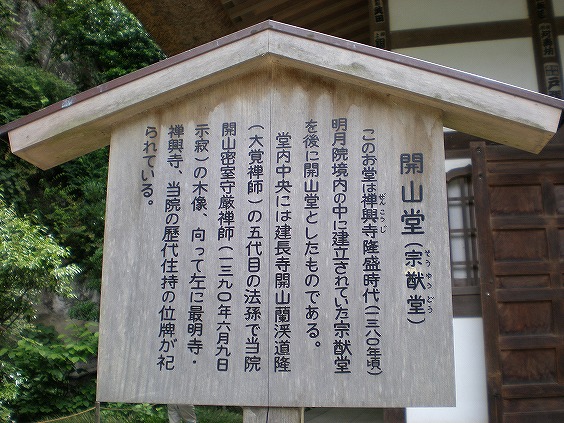 開山堂(宗猷堂)
そうゆうどう
このお堂は禅興寺隆盛時代(一三八〇年頃)
ぜんこうじ
明月院境内の中に建立されていた宗猷堂
を後に開山堂としたものである。
堂内中央には建長寺開山蘭渓道隆
(大覚禅師)の五代目の法孫で当院
開山密室守厳禅師(一三九〇年六月九日
示寂)の木像、向って左に最明寺・
禅興寺、当院の歴代住持の位牌が祀
られている。